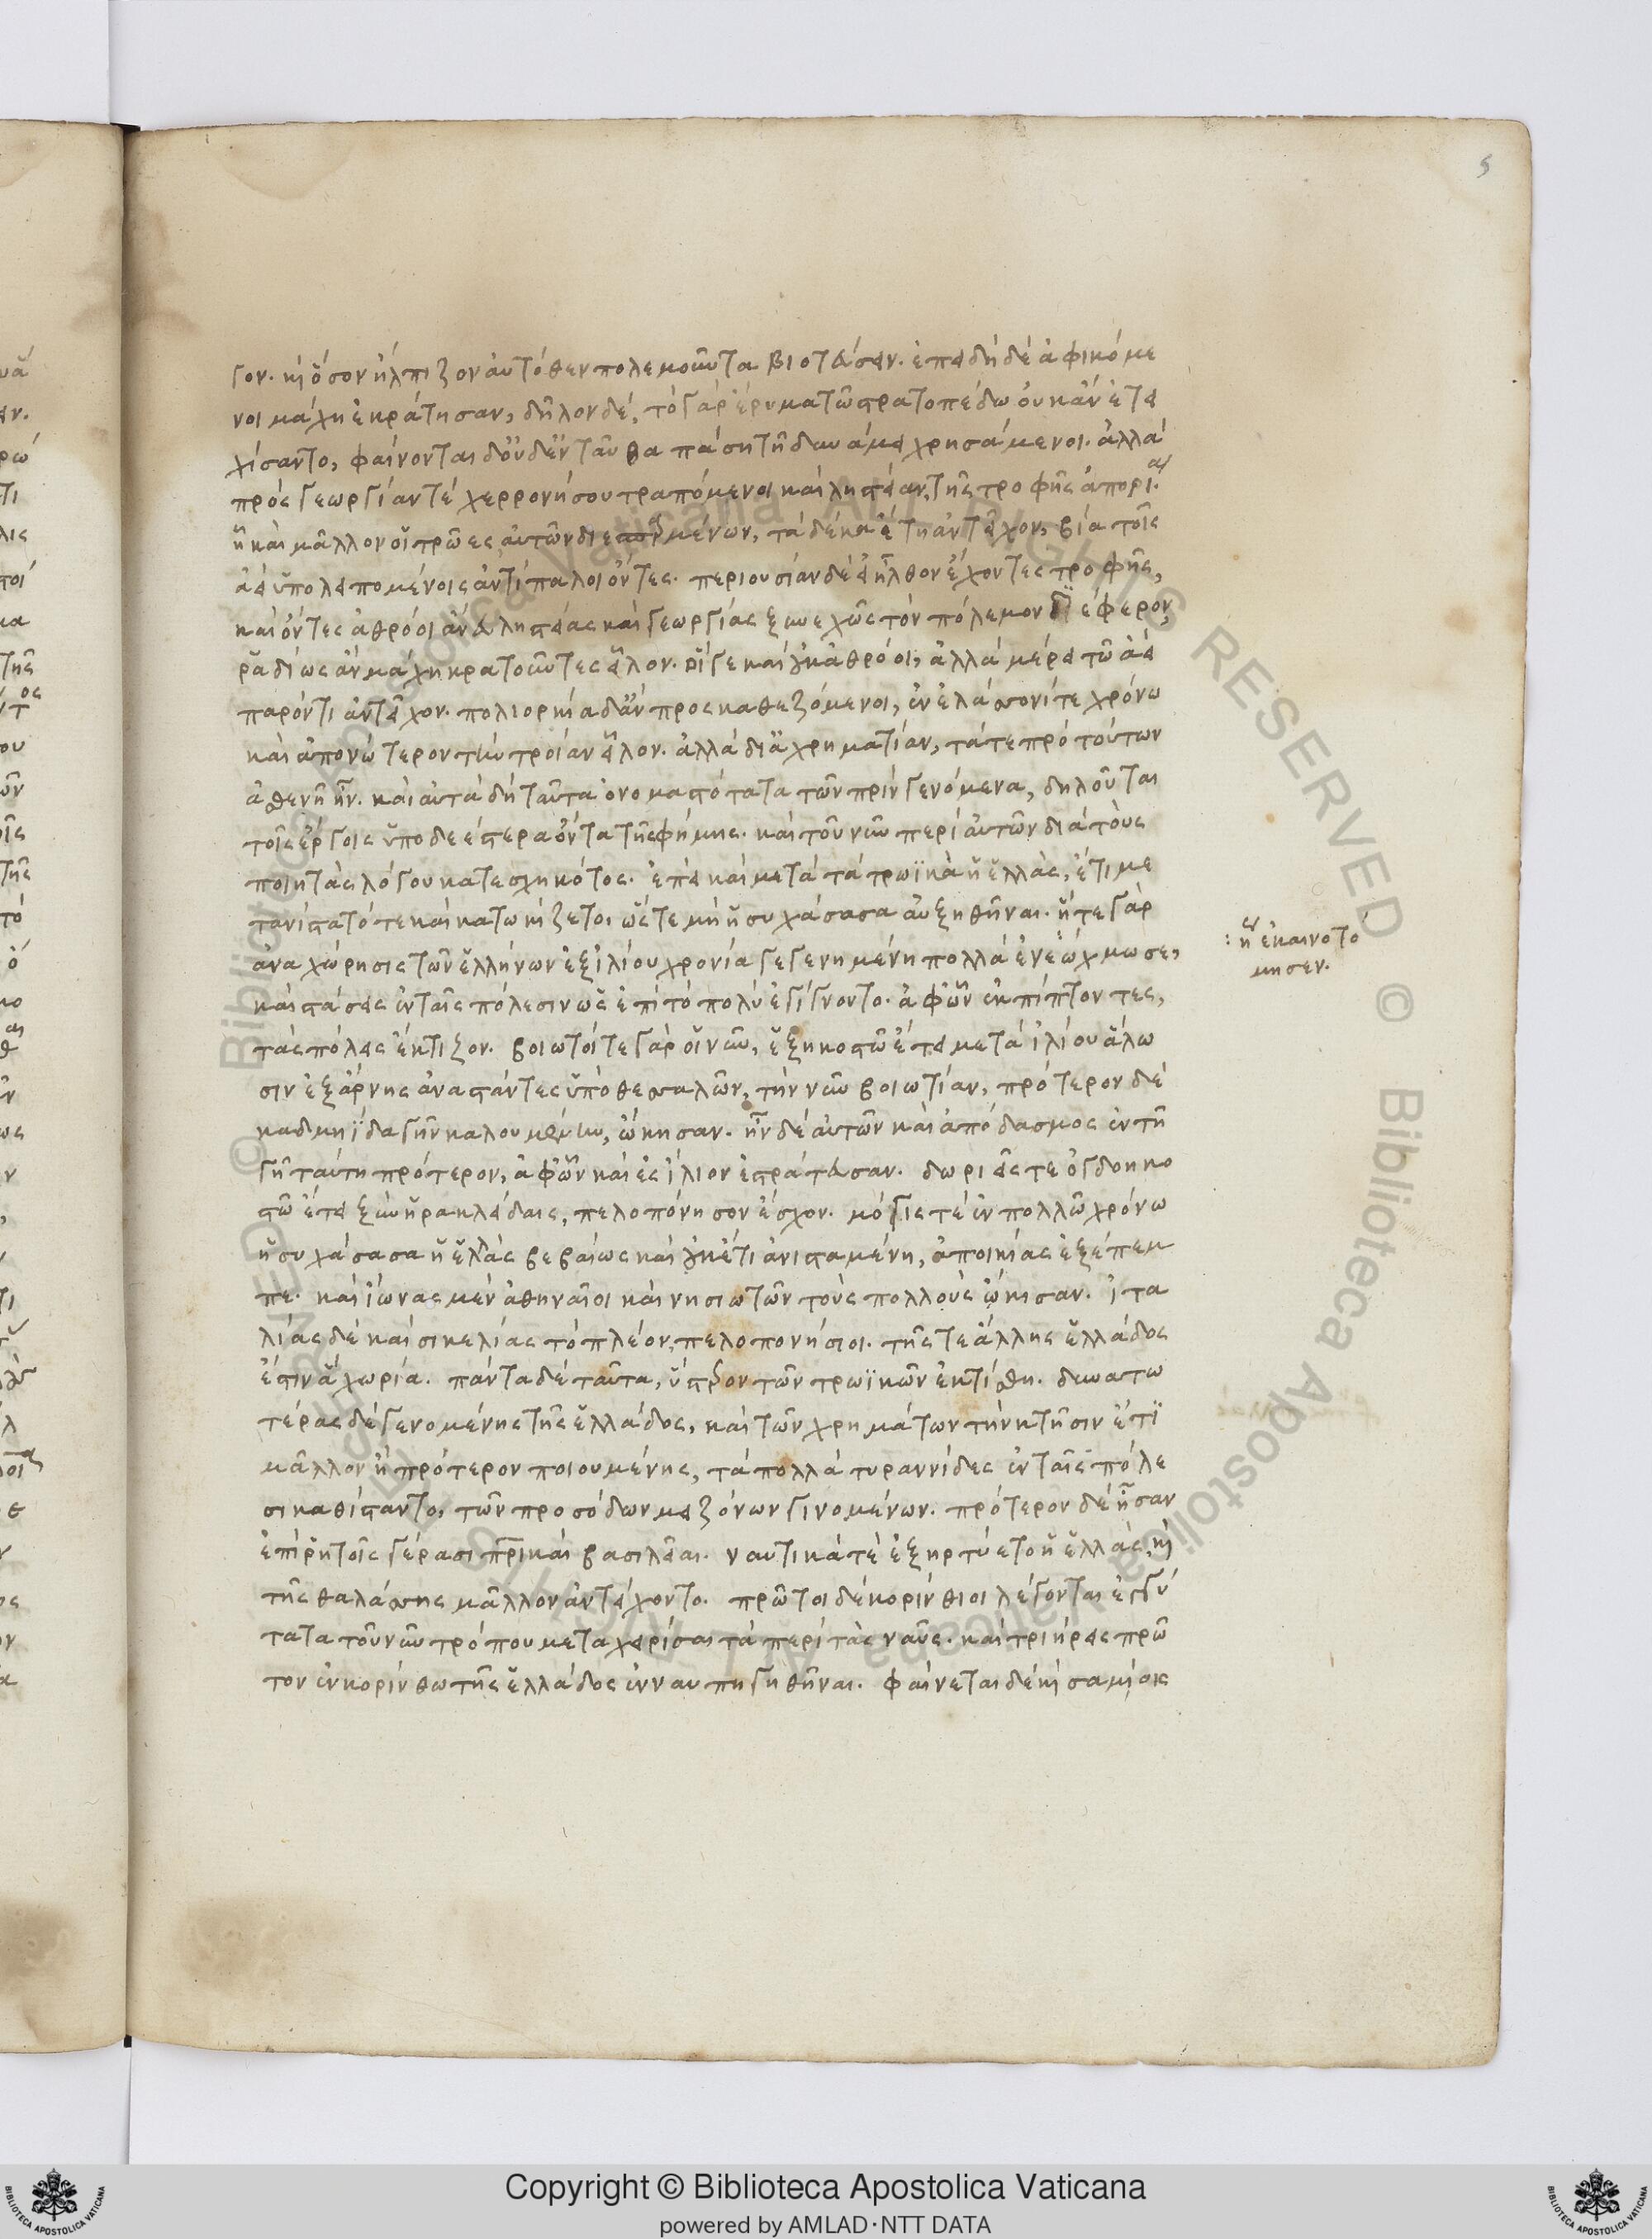 5
γον. κὶ ὅσον ἤλπιζον αὐτόθεν πολεμοῦντα βιοτεύσειν. ἐπειδὴ δὲ ἀφικόμε
νοι μάχη ἐκράτησαν, δῆλον δέ, τὸ γὰρ ἔρυμα τῶ στρατοπέδω οὐκ ἂν ἐτει
χίσαντο, φαίνονται δ οὐδ ἐνταῦθα πάση τῆ δυνάμει χρησάμενοι. ἀλλὰ
πρὸς γεωργίαν τὲ χερρονήσου τραπόμενοι καὶ ληστείαν, τῆς τροφῆς ἀπορία.
ἧ καὶ μᾶλλον οἱ τρῶες αὐτῶν διεσπαρμένων, τὰ δέκα ἔτη ἀντεῖχον, βία τοῖς
ἀεὶ ὑπολειπομένοις ἀντίπαλοι ὄντες. περιουσίαν δὲ εἰ ἦλθον ἔχοντες τροφῆς,
καὶ ὄντες ἀθρόοι ἄνευ ληστείας καὶ γεωργίας ξυνεχῶς τὸν πόλεμον διέφερον,
ῥαδίως ἂν μάχη κρατοῦντες εἷλον. οἵ γε καὶ οὐκ ἀθρόοι, ἀλλὰ μέρει τῶ ἀεὶ
παρόντι ἀντεῖχον. πολιορκία δ ἂν προσκαθεζόμενοι, ἐν ἐλάσσονί τε χρόνω
καὶ ἀπονώτερον τὴν τροίαν εἷλον. ἀλλὰ δι ἀχρηματίαν, τά τε πρὸ τούτων
ἀσθενῆ ἦν. καὶ αὐτὰ δὴ ταῦτα ὀνομαστότατα τῶν πρὶν γενόμενα, δηλοῦται
τοῖς ἔργοις ὑποδεέστερα ὄντα τῆς φήμης. καὶ τοῦ νῦν περὶ αὐτῶν διὰ τοὺς
ποιητὰς λόγου κατεσχηκότος. ἐπεὶ καὶ μετὰ τὰ τρωϊκὰ ἡ ἑλλὰς, ἔτι με
τανίστατό τε καὶ κατωκίζετο. ὥστε μὴ ἡσυχάσασα αὐξηθῆναι. ἥ τε γὰρ
ἀναχώρησις τῶν ἑλλήνων ἐξ ἰλίου χρονία γεγενημένη πολλὰ ἐνεώχμωσε,
: ἢ ἐκαινοτό
μησεν.
καὶ στάσεις ἐν ταῖς πόλεσιν ὡς ἐπὶ τὸ πολὺ ἐγίγνοντο. ἀφ ὧν ἐκπίπτοντες,
τὰς πόλεις ἔκτιζον. βοιωτοί τε γὰρ οἱ νῦν, ἑξηκοστῶ ἔτει μετὰ ἰλίου ἅλω
σιν ἐξ ἄρνης ἀναστάντες ὑπὸ θεσσαλῶν, τὴν νῦν βοιωτίαν, πρότερον δὲ
καδμηΐδα γῆν καλουμένην, ᾤκησαν. ἦν δὲ αὐτῶν καὶ ἀποδασμὸς ἐν τῆ
γῆ ταύτη πρότερον, ἀφ ὧν καὶ ἐς ἴλιον ἐστράτευσαν. δωριεῖς τε ὀγδοηκο
στῶ ἔτει ξὺν ἡρακλείδαις, πελοπόνησον ἔσχον. μόγις τὲ ἐν πολλῶ χρόνω
ἡσυχάσασα ἡ ἑλλὰς βεβαίως καὶ οὐκέτι ἀνισταμένη, ἀποικίας ἐξέπεμ
πε. καὶ ἴωνας μὲν ἀθηναῖοι καὶ νησιωτῶν τοὺς πολλοὺς ᾤκισαν. ἰτα
λίας δὲ καὶ σικελίας τὸ πλέον, πελοπονήσιοι. τῆς τε ἄλλης ἑλλάδος
ἔστιν ἃ χωρία. πάντα δὲ ταῦτα, ὕστερον τῶν τρωϊκῶν ἐκτίσθη. δυνατω
τέρας δὲ γενομένης τῆς ἑλλάδος, καὶ τῶν χρημάτων τὴν κτῆσιν ἔτι
μᾶλλον ἢ πρότερον ποιουμένης, τὰ πολλὰ τυραννίδες ἐν ταῖς πόλε
σι καθίσταντο, τῶν προσόδων μειζόνων γινομένων. πρότερον δὲ ἦσαν
ἐπὶ ῥητοῖς γέρασι πρικαὶ βασιλεῖαι. ναυτικά τὲ ἐξηρτύετο ἡ ἑλλὰς, κὶ
τῆς θαλάσσης μᾶλλον ἀντείχοντο. πρῶτοι δὲ κορίνθιοι λέγονται ἐγγύ
τατα τοῦ νῦν τρόπου μεταχειρίσαι τὰ περὶ τὰς ναῦς. καὶ τριήρεις πρῶ
τον ἐν κορίνθω τῆς ἑλλάδος ἐνναυπηγηθῆναι. φαίνεται δὲ κὶ σαμίοις
Copyright © Biblioteca Apostolica Vaticana
powered by AMLAD·NTT DATA